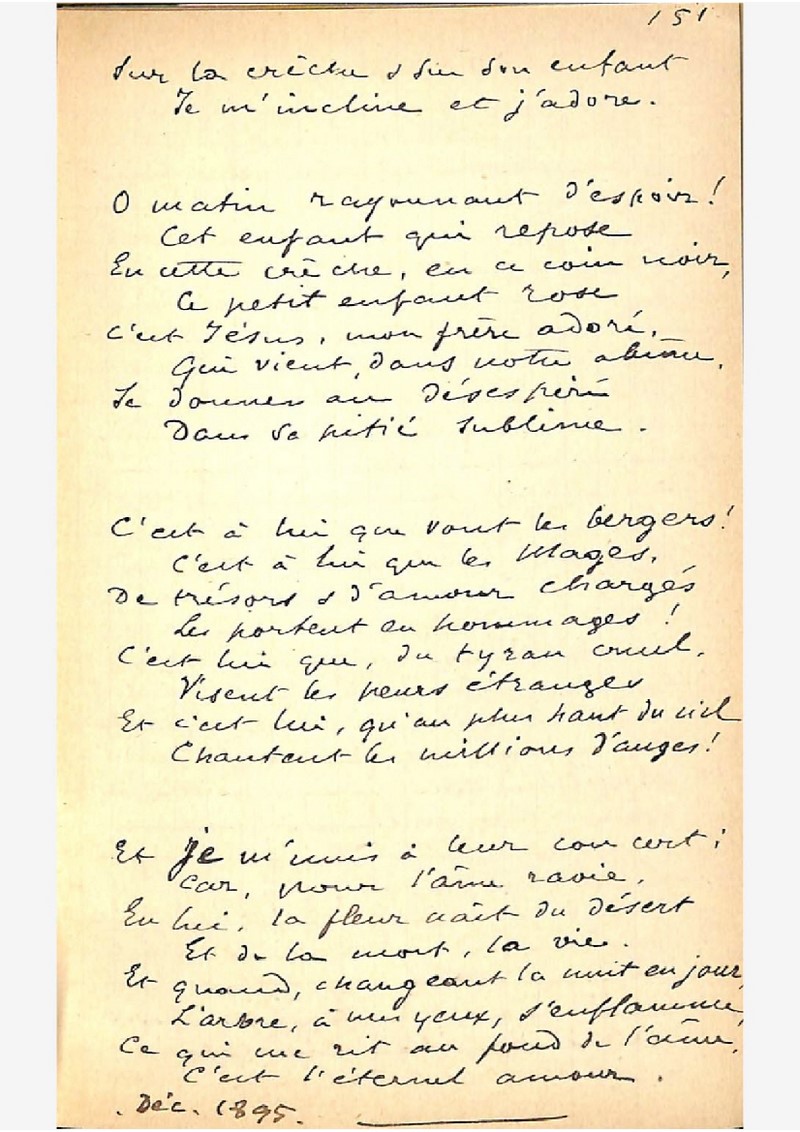 151
Sur la crèche & sur son enfant
Je m'incline et j'adore.
O matin rayonnant d'espoir!
Cet enfant qui repose
En cette crèche, en ce coin noir,
Ce petit enfant rose
C'est Jésus, mon frère adoré,
Qui vient, dans notre abîme,
Se donner au désespéré
Dans sa pitié sublime.
C'est à lui que vont les bergers!
C'est à lui que les Mages,
De trésors & d'amour chargés
Les portent en hommages!
C'est lui que, du tyran cruel,
Visent les peurs étranges
Et c'est lui, qu'au plus haut du ciel
Chantent les millions d'anges!
Et je m'unis à leur concert;
Car, pour l'âme ravie,
En lui, la fleur naît du désert
Et de la mort, la vie.
Et quand, changeant la nuit en jour,
L'arbre, à mes yeux, s'enflamme,
Ce qui me rit au fond de l'âme,
C'est l'éternel amour.
. Déc. 1895.